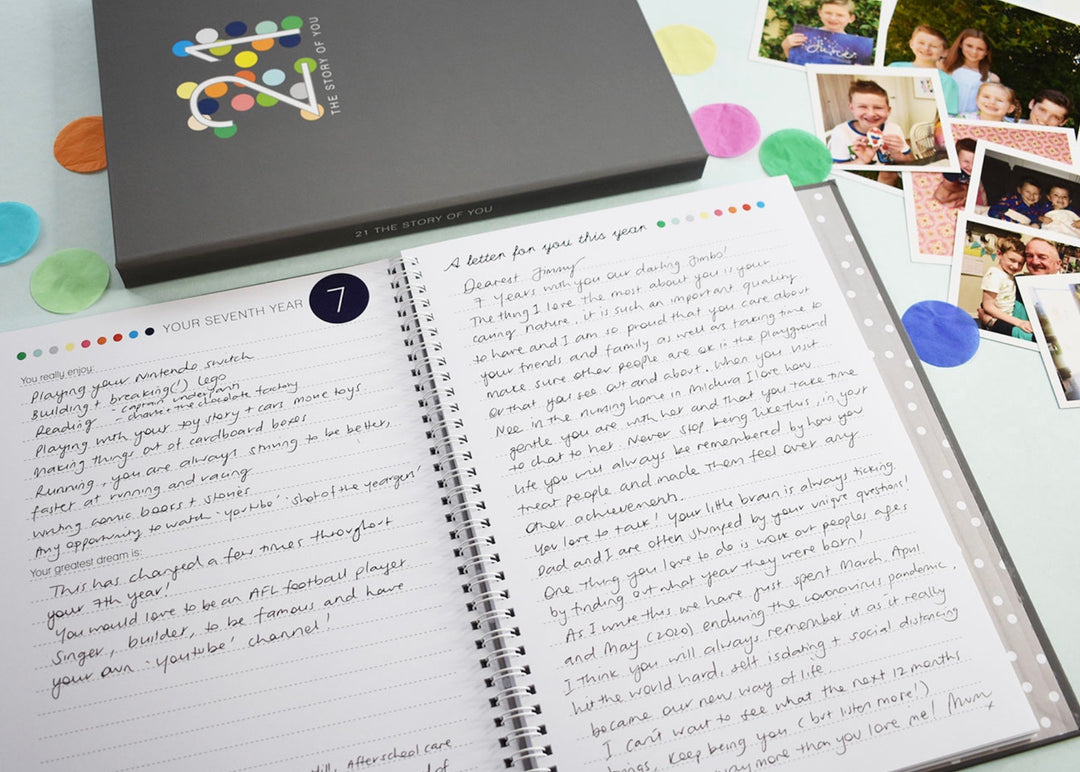 21
THE STORY OF YOU
21 THE STORY OF YOU
YOUR SEVENTH YEAR
7
You really enjoy:
Playing your Nintendo switch
Building + breaking(!) lego
Reading - captain underpants
- charlie + the chocolate factory
Playing with your toy story + cars movie toys
Making things out of cardboard boxes
Running, you are always striving to be better,
faster at running and racing
Writing comic books + stories
Any opportunity to watch 'youtube' 'shot of the yeargers'
Your greatest dream is:
This has changed a few times throughout
your 7th year!
You would love to be an AFL football player
Singer, builder, to be famous and have
your own 'youtube' channel!
After school care
A letter for you this year
Dearest Jimmy
7 years with you our darling Jimbo!
The thing I love the most about you is your
caring nature, it is such an important quality
to have and I am so proud that you care about
your friends and family as well as taking time to
make sure other people are ok in the playground
or that you see out and about. When you visit
Nee in the nursing home in Mildura I love how
gentle you are with her and that you take time
to chat to her. Never stop being like this, in your
life you will always be remembered by how you
treat people and made them feel over any
other achievements.
You love to talk! Your little brain is always ticking.
Dad and I are often stumped by your unique questions!
One thing you love to do is work out peoples ages
by finding out what year they were born!
As I write this we have just spent March, April
and May (2020) enduring the coronavirus pandemic.
I think you will always remember it as it really
hit the world hard, self isolating + social distancing
became our new way of life.
I can't want to see what the next 12 months
brings, keep being you (but listen more!)
way more than you love me! Mum
x